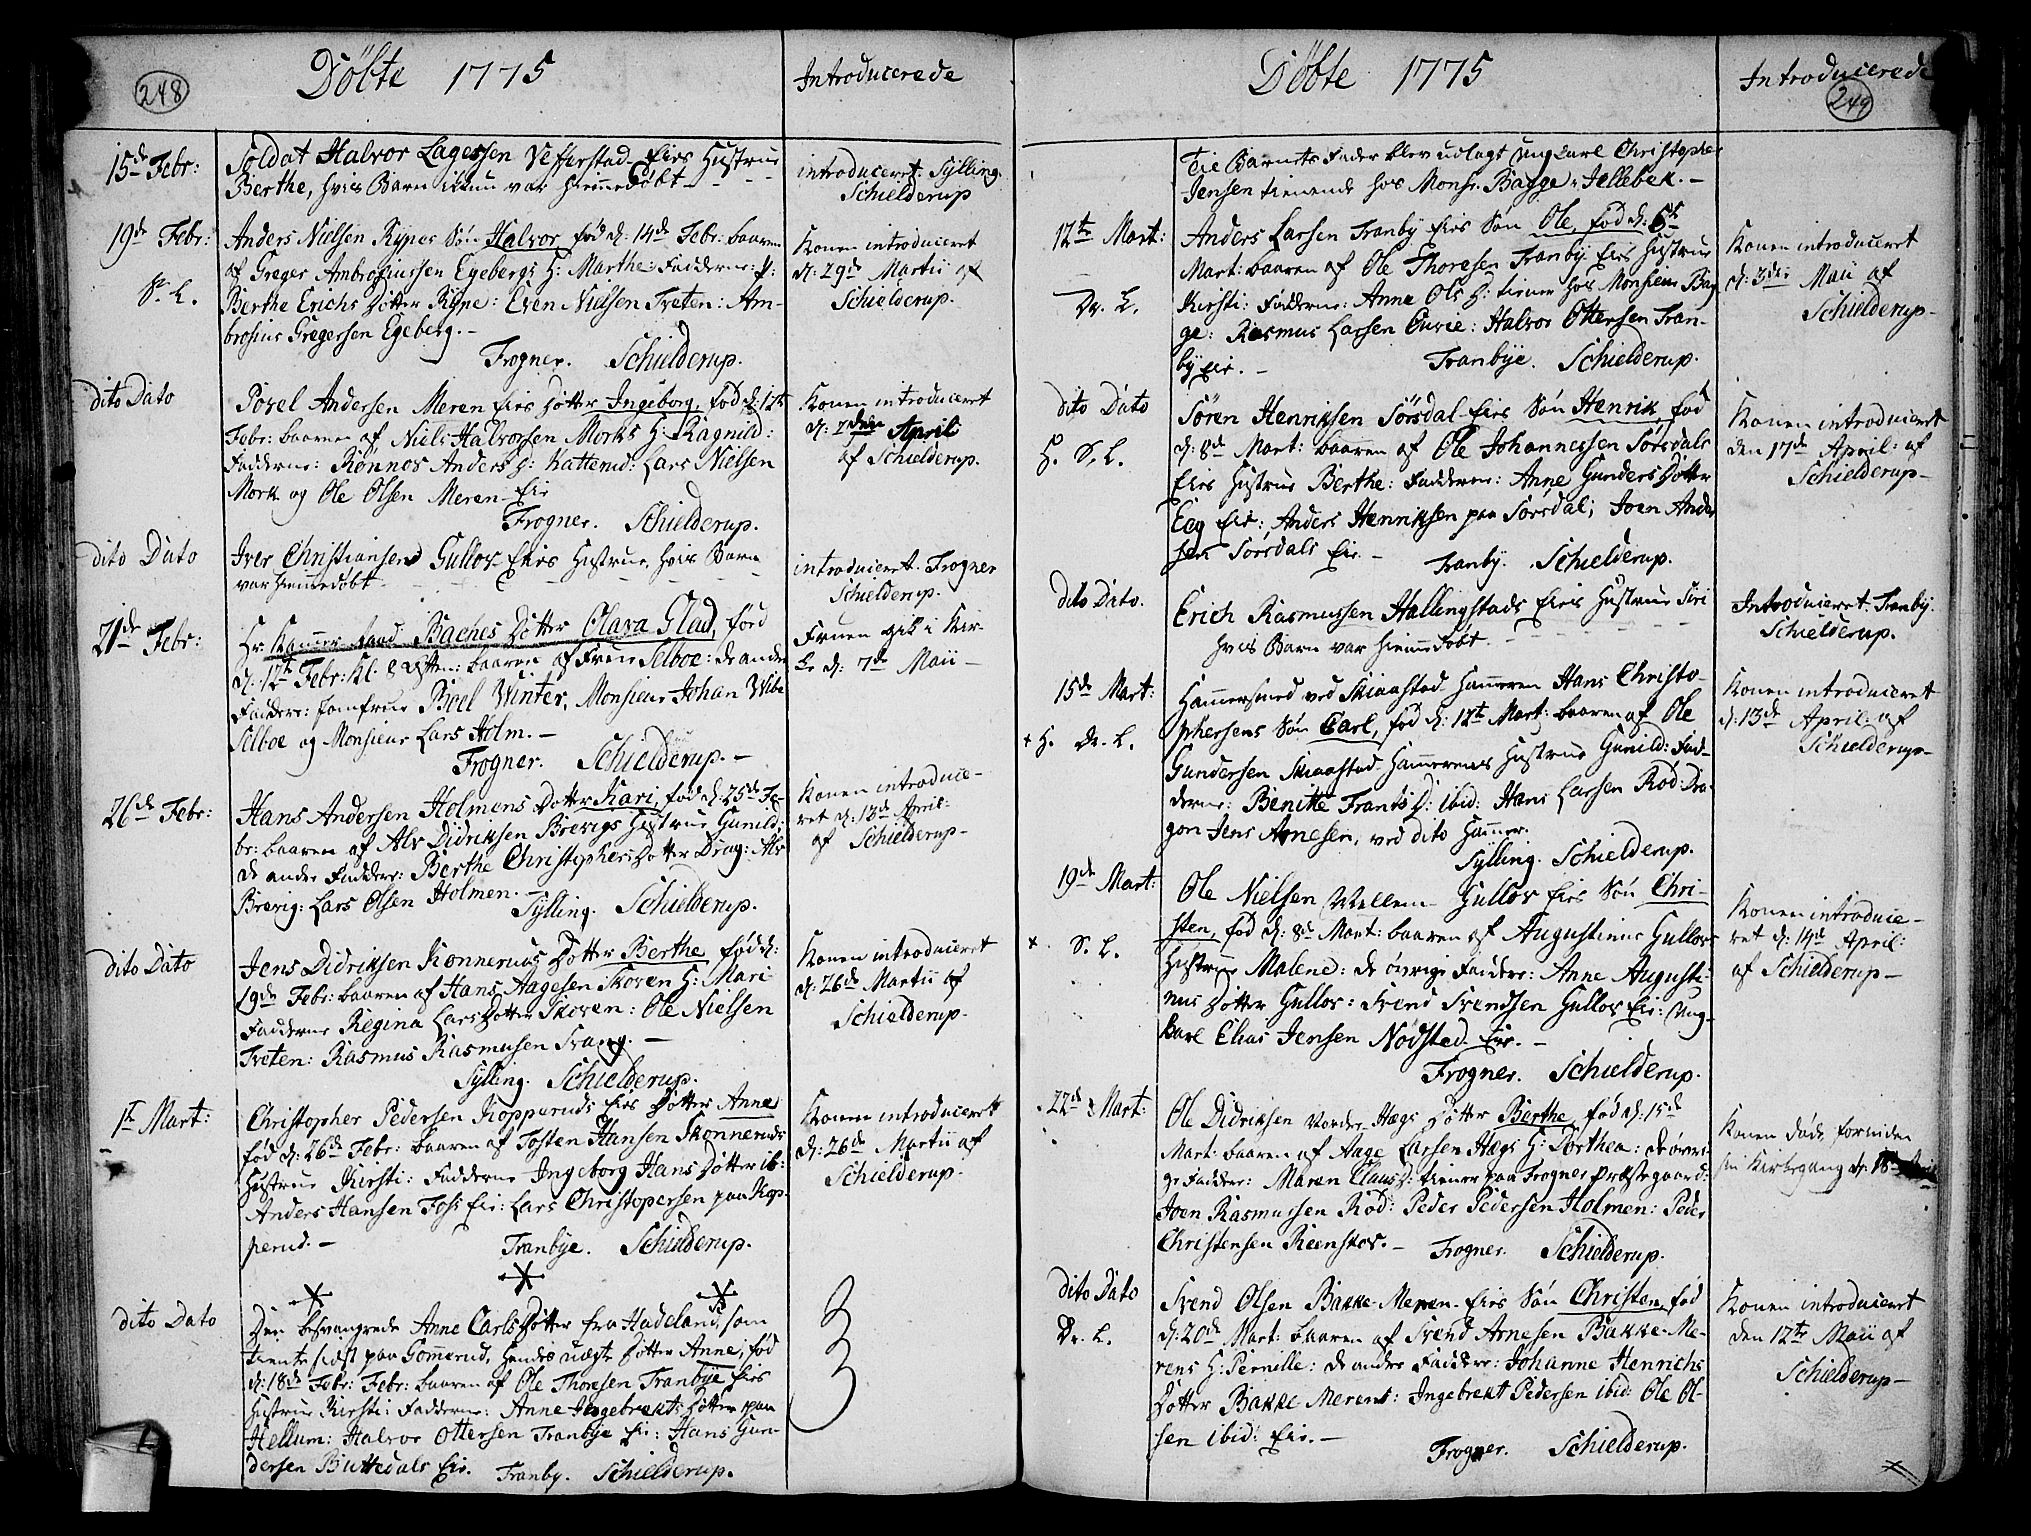 248
Döbte 1775
Introducerede
15de Febr:
Soldat Halvor Lagessen Vefferstad Eies Hustrue
Berthe, hvis Barn var hiemmedöbt
introduceret Sylling.
Schielderup
19de Febr:
S. L.
Anders Nielsen Rypes Sön Halvor, föd d: 14de Febr: baaren
af Greger Ambrosiussen Egebergs H: Marthe: Fadderne: p:
Berthe Erichs Dötter Rype: Even Nielsen Treten: Am-
brosius Gregersen Egeberg.-
Frogner. Schielderup.
Konen introduceret
d: 29de Martii af
Schielderup.
dito Dato
Povel Andersen Meren Eies Dötter Ingeborg, föd d: 12te
Febr: baaren af Niels Halvorssen Morks H: Ragnild:
Fadderne: Rönnos Anders D: Katterud: Lars Nielsen
Mork og Ole Olsen Meren-Eie
Frogner. Schielderup.
Konen introduceret
d: April
af Schielderup.
dito Dato
Iver Christiansen Gullov-Eies Hustrue, hvis Barn
var hiemmedöbt
introduceret Frogner
Schielderup.
21de Febr:
Hr: Kammer-Raad Baches Dötter Olava Glad, föd
d: 12te Febr: Kl: 8 Aften: baaren af Frue Selboe: de andre
Faddere: Jomfrue Boel Winter, Monsieur Johan Wibe
Selboe og Monsieur Lars Holm.-
Frogner. Schielderup.-
Fruen gik i Kir-
ke d: 7de Maii-
26de Febr:
Hans Andersen Holmens Dötter Kari, föd d: 25de Fe-
br: baaren af Alv Didriksen Brevigs Hustrue Gunild:
de andre Faddere: Berthe Christophers Dötter Drag: Alv
Brevig: Lars Olsen Holmen.-
Sylling. Schielderup.
Konen introduce-
ret d: 13de April:
af Schielderup-
dito Dato
Jens Didriksen Konneruds Dötter Berthe, föd d:
19de Febr: baaren af Hans Aagesen Skoven H: Mari
Fadderne Regina Lars Dötter Skoven: Ole Nielsen
Treten: Rasmus Rasmusen Trang.-
Sylling. Schielderup.
Konen introduceret
d: 26de Martii af
Schielderup-
1te Mart:
Christopher Pedersen Kopperuds Eies Dötter Anne
föd d: 26de Febr: baaren af Tosten Hansen Skonneruds
Hustrue Kirsti: Fadderne Ingeborg Hans Dötter ib:
Anders Hansen Foss Eie: Lars Christopersen paa Kop-
perud.-
Tranbye. Schielderup.
Konen introduceret
d: 26de Martii af
Schielderup-
dito Dato
Den besvangrede Anne Carls Dötter fra Hadeland, som
tiente sidst paa Gommerud, hendes uægte Dötter Anne, föd
d: 18de Febr: Febr: baaren af Ole Thoresen Tranbye Eies
Hustrue Kirsti: Fadderne: Anne Ingebrekts Dötter paa
Hellum: Halvor Ottersen Tranbye Eie: Hans Gun-
dersen Buttedals Eie. Tranby. Schielderup.
Döbte 1775
Introducerede
249
Tie Barnets Fader blev udlagt Ung Carl Christopher
Jensen tienende hos Monsr. Bagge-Jellebek.-
12te Mart:
Dr. L.
Anders Larsen Tranby Eies Sön Ole, föd d: 6te
Mart: baaren af Ole Thoresen Tranby Eies Hustrue
Kirsti: Fadderne: Anne Ols D: tiener hos Monsieur Bag-
ge: Rasmus Larsen Enrie: Halvor Ottersen Tran-
by Eie.- Tranbye. Schielderup.
Konen introduceret
d: 3de Maii af
Schielderup-
dito Dato
H. S. L.
Sören Henriksen Sörsdal-Eies Sön Henrik, föd
d: 8de Mart: baaren af Ole Johannessen Sörsdals
Eies Hustrue Berthe: Fadderne: Anne Gunders Dötter
Eeg Eie: Anders Henriksen paa Sörsdal; Joen Ander
sen Sörsdals Eie.- Tranby. Schielderup.
Konen introduceret
den 17de April: af
Schielderup-
dito Dato.
Erich Rasmussen Hallingstads Eies Hustrue Siri
hvis Barn var hiemmedöbt.
Introduceret Tranby.
Schielderup.
15de Mart:
+ H. Dr. L.
Hammersmed ved Skiaastad-Hammeren Hans Christo-
phersens Sön Carl, föd d: 12te Mart: baaren af Ole
Gundersen Skiaastad-Hammerens Hustrue Gunild: Fad-
derne: Benitte Frants D: ibid: Hans Larsen Röd: Dra-
gon Jens Arnesen, ved dito Hammer.
Sylling. Schielderup.
Konen introduceret
d: 13de April: af
Schielderup-
19de Mart:
x S. L.
Ole Nielsen Mellem-Gullov Eies Sön Chri-
sten, föd d: 8de Mart: baaren af Augustinus Gullovs
Hustrue Malene: de övrige Faddere: Anne Augusti-
nus Dötter Gullov: Svend Svendsen Gullov Eie: Ung-
karl Elias Jensen Nödsted-Eie.-
Frogner. Schielderup.
Konen introduce-
ret d: 14de April:
af Schielderup-
22de Mart:
Ole Didriksen Vordre-Hægs Dötter Berthe, föd d: 15de
Mart: baaren af Aage Larsen Hægs H: Dorthea: de övri-
ge Faddere: Maren Claus D: tiener paa Frogner Præstegaard:
Joen Rasmussen Röd: Peder Pedersen Holmen: Peder
Christensen Reenskov.- Frogner. Schielderup.
Konen döde forinden
sin Kirkegang d: 18de April
dito Dato
Dr. L.
Svend Olsen Bakke-Meren-Eies Sön Christen, föd
d: 20de Mart: baaren af Svend Arnesen Bakke-Me-
rens H: Pernille: de andre Faddere: Johanne Henrichs
Dötter Bakke Merens: Ingebrekt Pedersen ibid: Ole Ol-
sen ibid: Eie.-
Frogner. Schielderup.
Konen introduceret
den 12te Maii af
Schielderup-